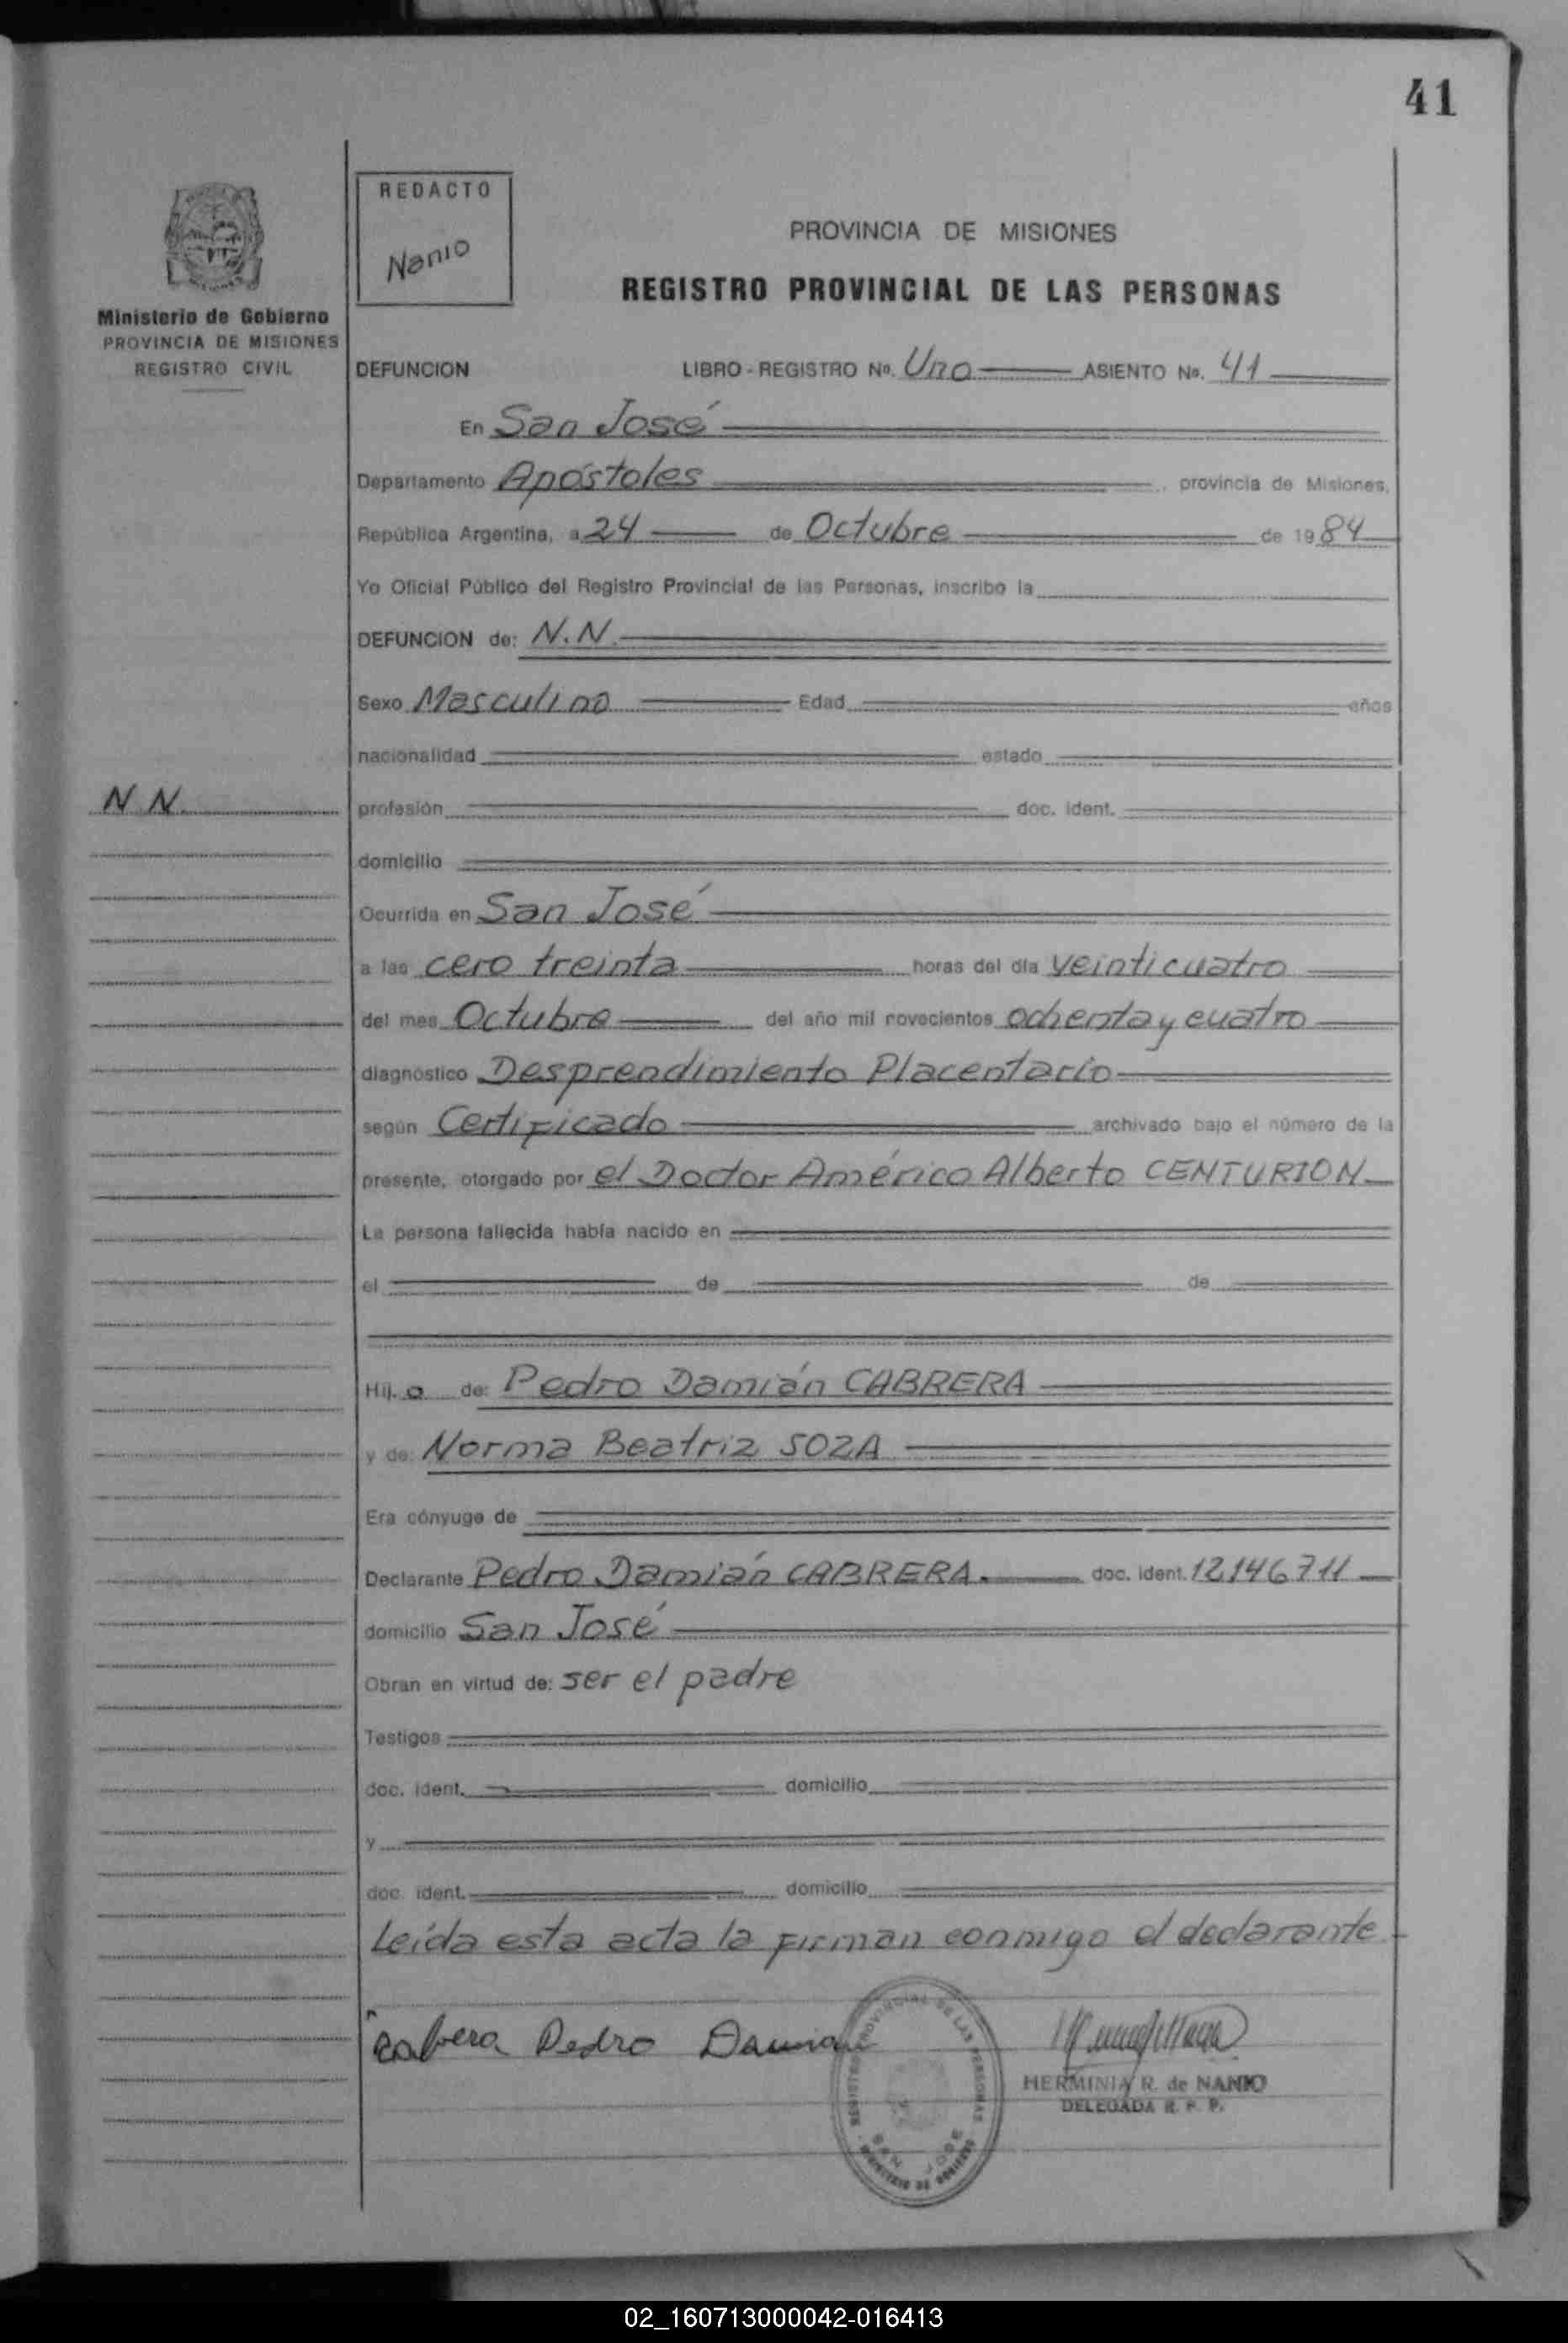 41
REDACTO
Nanio
Ministerio de Gobierno
PROVINCIA DE MISIONES
REGISTRO CIVIL
PROVINCIA DE MISIONES
REGISTRO PROVINCIAL DE LAS PERSONAS
DEFUNCION LIBRO - REGISTRO Nº. Uno ASIENTO Nº. 41
En San José
Departamento Apóstoles, provincia de Misiones,
República Argentina, a 24 de Octubre de 1984
Yo Oficial Público del Registro Provincial de las Personas, inscribo la
DEFUNCION de: N.N.
Sexo Masculino Edad años
nacionalidad estado
N N. profesión doc. ident.
domicilio
Ocurrida en San José
a las cero treinta horas del día veinticuatro
del mes Octubre del año mil novecientos ochenta y cuatro
diagnóstico Desprendimiento Placentario
según Certificado archivado bajo el número de la
presente, otorgado por el Doctor Américo Alberto CENTURION
La persona fallecida había nacido en
el de de
Hij. o de: Pedro Damián CABRERA
y de: Norma Beatriz SOZA
Era cónyuge de
Declarante Pedro Damián CABRERA. doc. ident. 12146711
domicilio San José
Obran en virtud de: ser el padre
Testigos
doc. ident. domicilio
y
doc. ident. domicilio
Leída esta acta la firman conmigo el declarante
Cabrera Pedro Damian
REGISTRO PROVINCIAL DE LAS PERSONAS
SAN JOSE
MINISTERIO DE GOBIERNO
HERMINIA R. de NANIO
DELEGADA R. P. P.
02_160713000042-016413